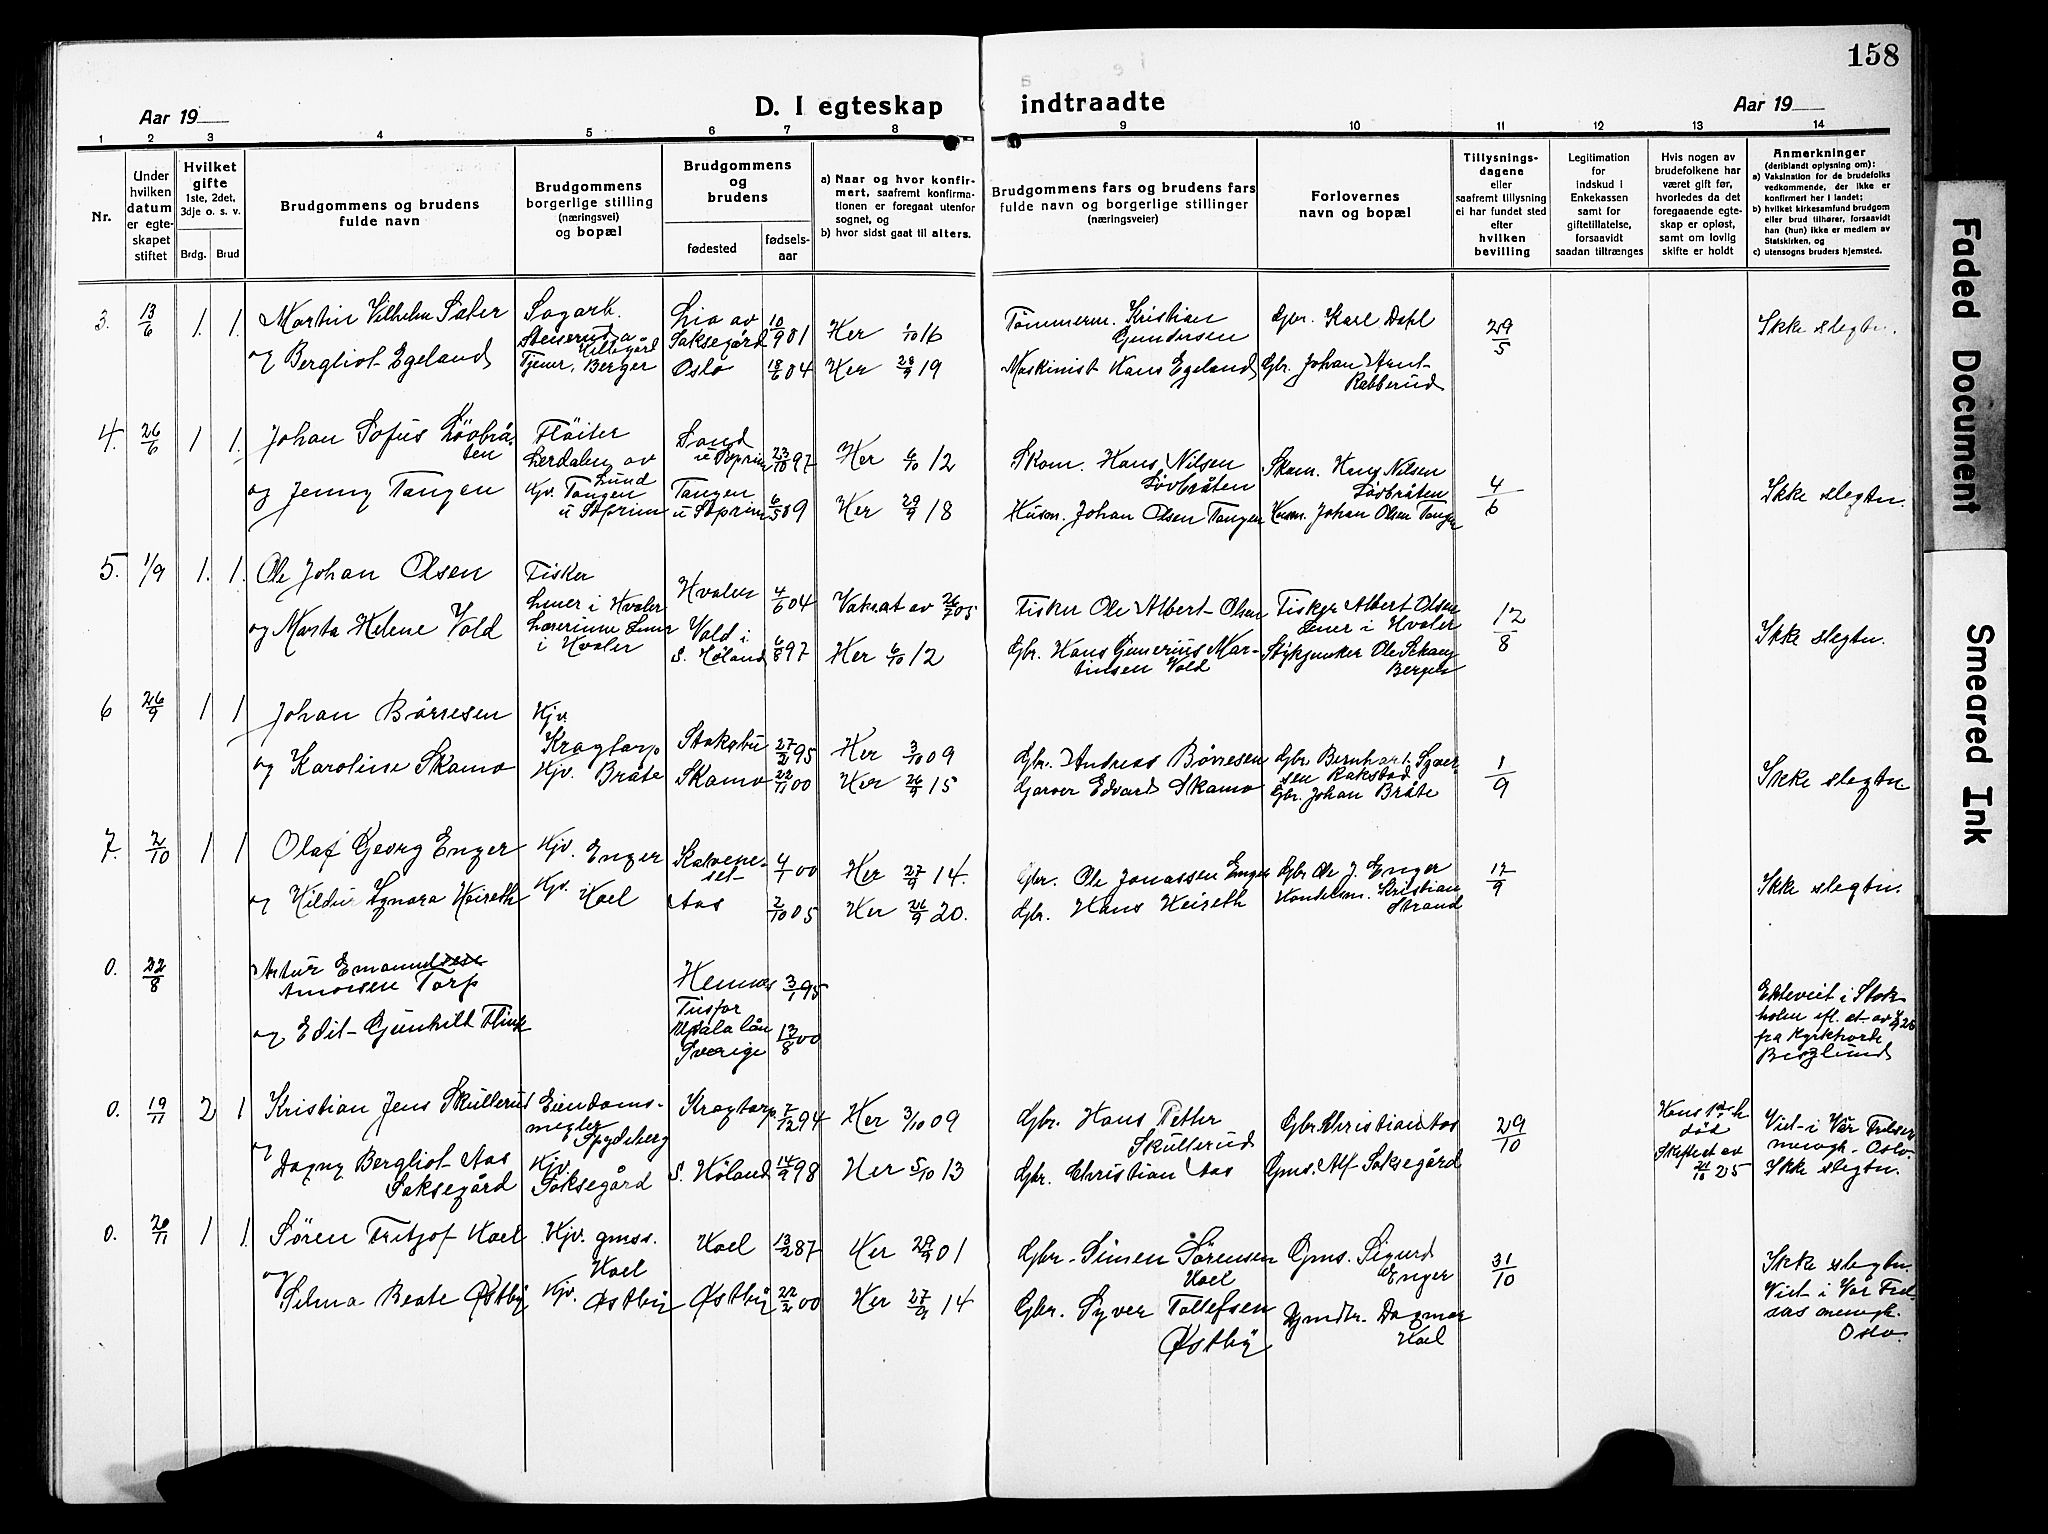 158
D. I egteskap indtraadte
Aar 19
Aar 19
1 2 3 4 5 6 7 8 9 10 11 12 13 14
Nr.
Under hvilken datum er egteskapet stiftet
Hvilket gifte
1ste, 2det, 3dje o. s. v.
Brdg. Brud
Brudgommens og brudens fulde navn
Brudgommens borgerlige stilling (næringsvei) og bopæl
Brudgommens og brudens
fødested
fødsels-aar
a) Naar og hvor konfirmert, saafremt konfirmationen er foregaat utenfor sognet, og
b) hvor sidst gaat til alters.
Brudgommens fars og brudens fars fulde navn og borgerlige stillinger (næringsveier)
Forlovernes navn og bopæl
Tillysningsdagene eller saafremt tillysning ei har fundet sted efter hvilken bevilling
Legitimation for indskud i Enkekassen samt for giftetillatelse, forsaavidt saadan tiltrænges
Hvis nogen av brudefolkene har været gift før, hvorledes da det foregaaende egteskap er opløst, samt om lovlig skifte er holdt
Anmerkninger (deriblandt oplysning om):
a) Vaksination for de brudefolks vedkommende, der ikke er konfirmert her i landet;
b) hvilket kirkesamfund brudgom eller brud tilhører, forsaavidt han (hun) ikke er medlem av Statskirken, og
c) utensogns bruders hjemsted.
3. 13/6 1. 1. Martin Vilhelm Sæter
og Bergliot Egeland
Sagarb.
Tjener, Berger
Lia av Saksegård 10/9 01
Oslo 18/6 04
Her 1/10 16
Her 28/9 19
Tømmerm. Kristian Gundersen
Maskinist Hans Egeland
Gbr. Karl Dahl
Gbr. Johan Arnt Rabberud
29/5
Ikke slegtn.
4. 26/6 1 1. Johan Sofus Løvbråten
og Jenny Tangen
Fløiter
Lerdalen av Lund
Kjv. Tangen u Stprim
Sand u Stprim 23/10 97
Tangen u Stprim 6/5 89
Her 6/10 12
Her 29/9 18
Skom. Hans Nilsen Løvbråten
Husm. Johan Olsen Tangen
Skom. Hans Nilsen Løvbråten
Husm. Johan Olsen Tangen
4/6
Ikke slegtn.
5. 1/9 1. 1. Ole Johan Olsen
og Marta Helene Vold
Fisker
Lauer i Hvaler
Lærerinne Lauer i Hvaler
Hvaler 4/6 04
Vold i S. Høland 6/8 97
Vaksat av 26/7 05
Her 6/10 12
Fisker Ole Albert Olsen
Gbr. Hans Gunerius Martinsen Vold
Fisker Albert Olsen Lauer i Hvaler
Stykjunker Ole Skaug Bergen
12/8
Ikke slegtn.
6 26/9 1 1 Johan Børresen
og Karoline Skamo
Kjv. Kragtorp
Kjv. Bråte
Stoksbu 27/2 95
Skamo 22/11 00
Her 3/10 09
Her 26/9 15
Gbr. Andreas Børresen
Garver Edvard Skamo
Gbr. Bernhart Syversen Rakstad
Gbr. Johan Bråte
1/9
Ikke slegtn
7. 2/10 1 1 Olaf Georg Enger
og Hildur Ignora Heireth
Kjv. Enger
Kjv. Kael
4/1 00
Aas 2/10 05
Her 27/9 14.
Her 26/9 20.
Gbr. Ole Jonassen Enger
Gbr. Hans Heireth
Gbr Ole J. Enger
Handelsm. Kristian Strand
12/9
Ikke slegtn.
0. 22/8 Artur Emanuel
Torp
og Edit Gunhilt Flink
Hemnes 3/1 95
Upsala län Sverige 13/8 00
Ekteviet i Stokholm efl. at. av
Berglund
0. 19/11 2 1 Kristian Jens Skullerud
og
Dagny Bergliot Aas Saksegård
Eiendomsmegler Spydeberg
Kjv. Saksegård
Kragtorp 7/12 94
S. Høland 14/9 98
Her 3/10 09
Her 5/10 13
Gbr. Hans Petter Skullerud
Gbr. Christian Aas
Gbr Christian Aas
Gms. Alf Saksegård
29/10
Hans 1ste h død
Skiftet av 24/10 25
Viet i Vår Frelser menigh. Oslo.
Ikke slegtn.
0. 20/11 1 1. Søren Fritjof Kael
og
Selma Beate Østby
Kjv. gmss. Kael
Kjv. Østby
Kael 13/2 87
Østby 22/2 00
Her 29/9 01
Her 27/9 14
Gbr. Simen Sørensen Kael
Gbr. Syver Tollefsen Østby
Gms. Sigurd Enger
Gmdtr. Dagmar Kael
31/10
Ikke slegtn.
Viet i Vår Frelsers menigh. Oslo.
Faded Document
Smeared Ink